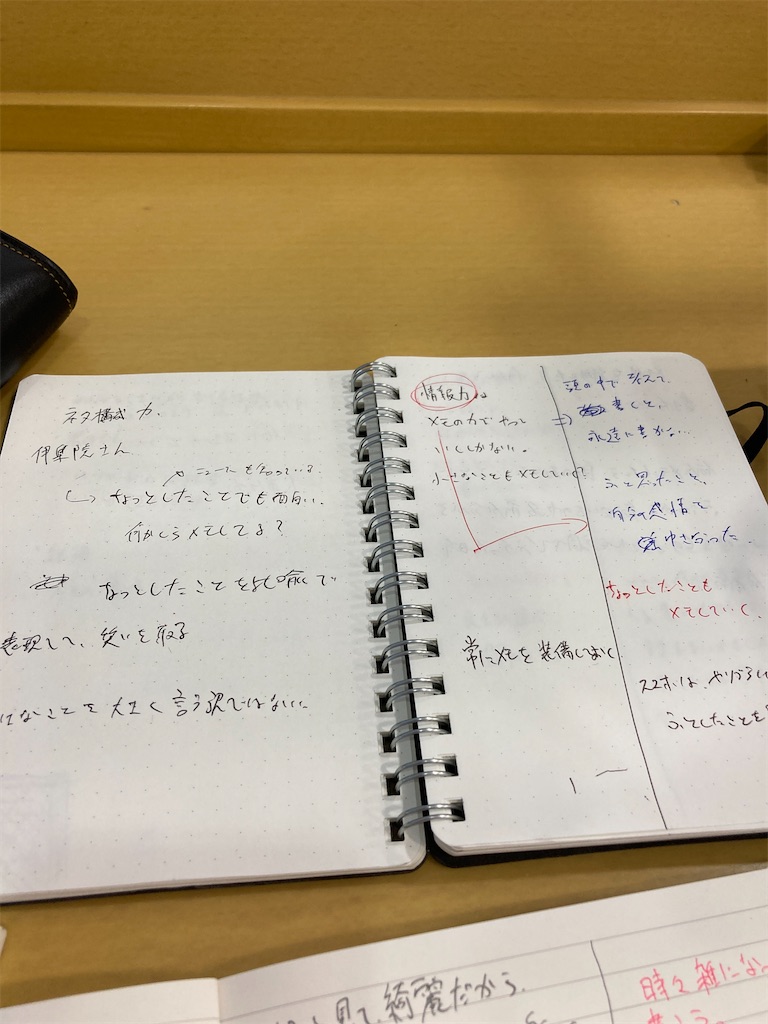 ネタ構成力、
伊集院さん
ニュースも知っている。
なっとしたことでも面白い、
何かしらメモしてる?
なっとしたことを比喩で
表現して、笑いを取る
なことを大きく言う訳ではない。
情報力。
メモの力でやって
いくしかない。
小さなこともメモしていく?
常にメモを装備しておく。
頭の中で
⇒ 書くと、
永遠に書かない…
ふと思ったこと、
自分の感情で
なっとしたことも
メモしていく、
スマホは、やりづらい
ふとしたことを
見て、綺麗だから、
時々雑になっ